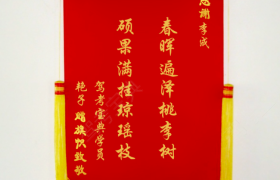 感谢李成
春晖遍泽桃李树
硕果满挂琼瑶枝
驾考宝典学员
艳子 赠旗帜致敬